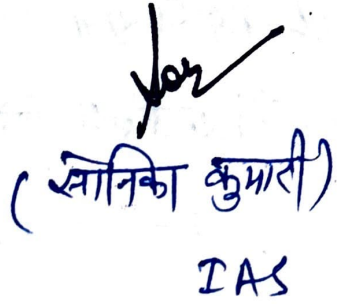 (सोनिका कुमारी)
IAS